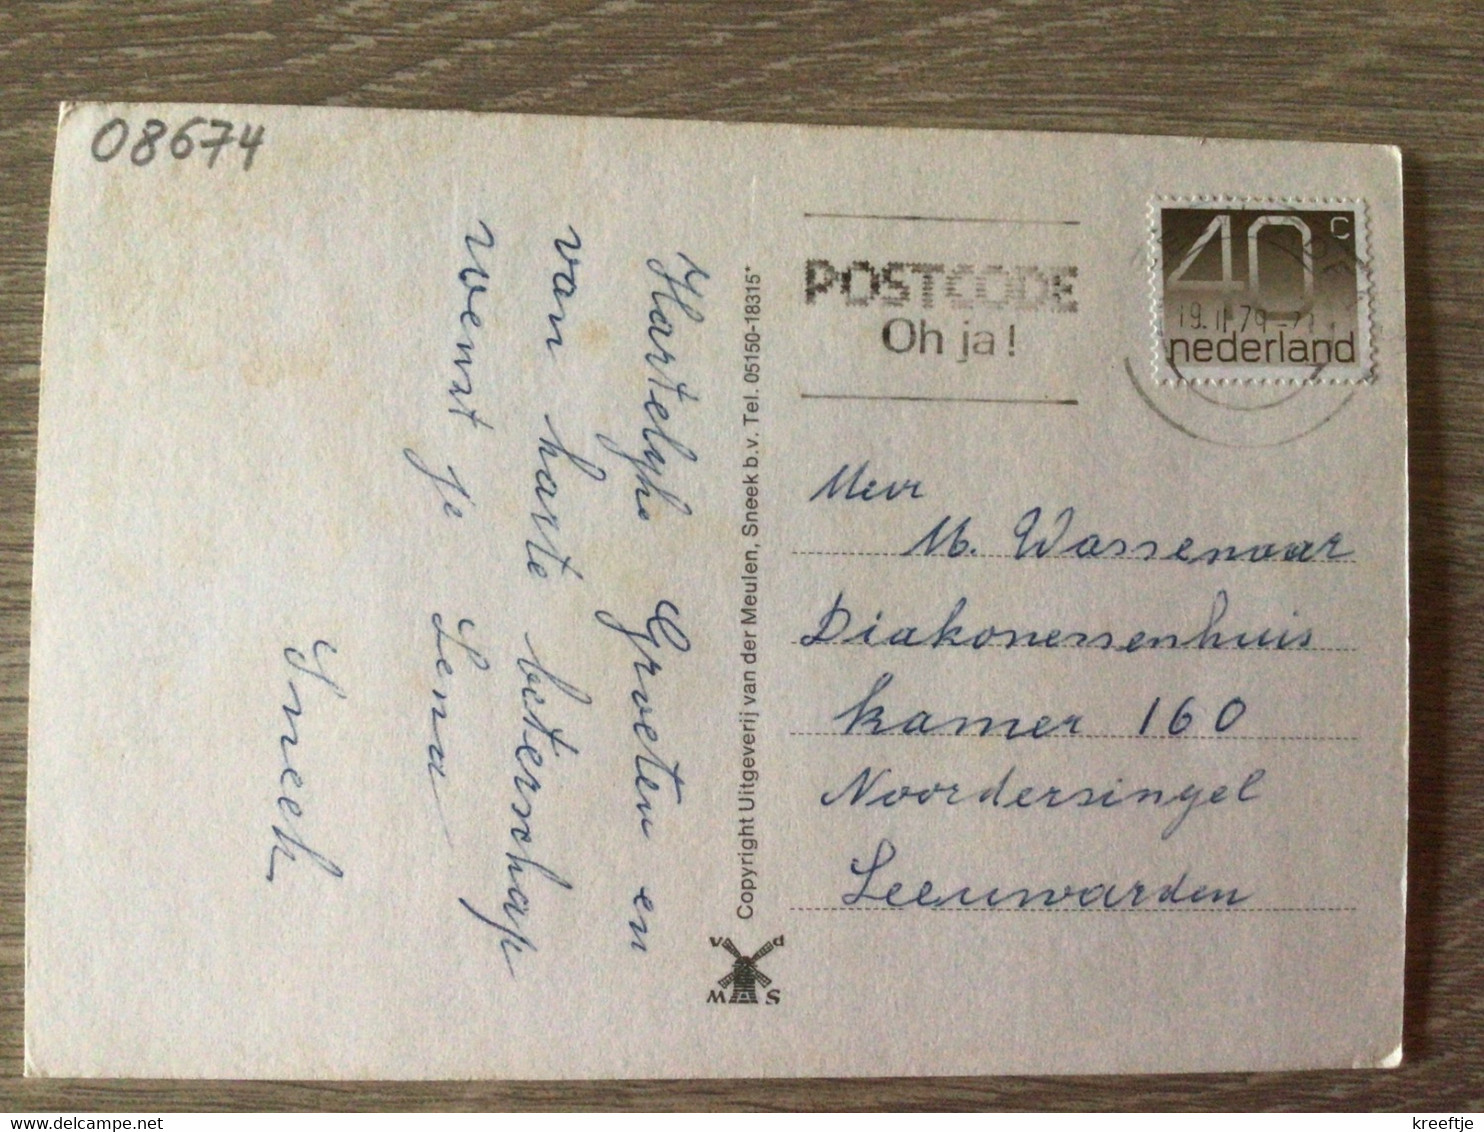 08674
Hartelyke Groeten en
van harte beterschap
wenst je Lena
Sneek
Copyright Uitgeverij van der Meulen, Sneek b.v. Tel. 05150-18315*
v d
M S
POSTCODE
Oh ja!
40 c
nederland
19.II.79
Mevr
M. Wassenaar
Diakonessenhuis
kamer 160
Noordersingel
Leeuwarden
delcampe.net
kreeftje